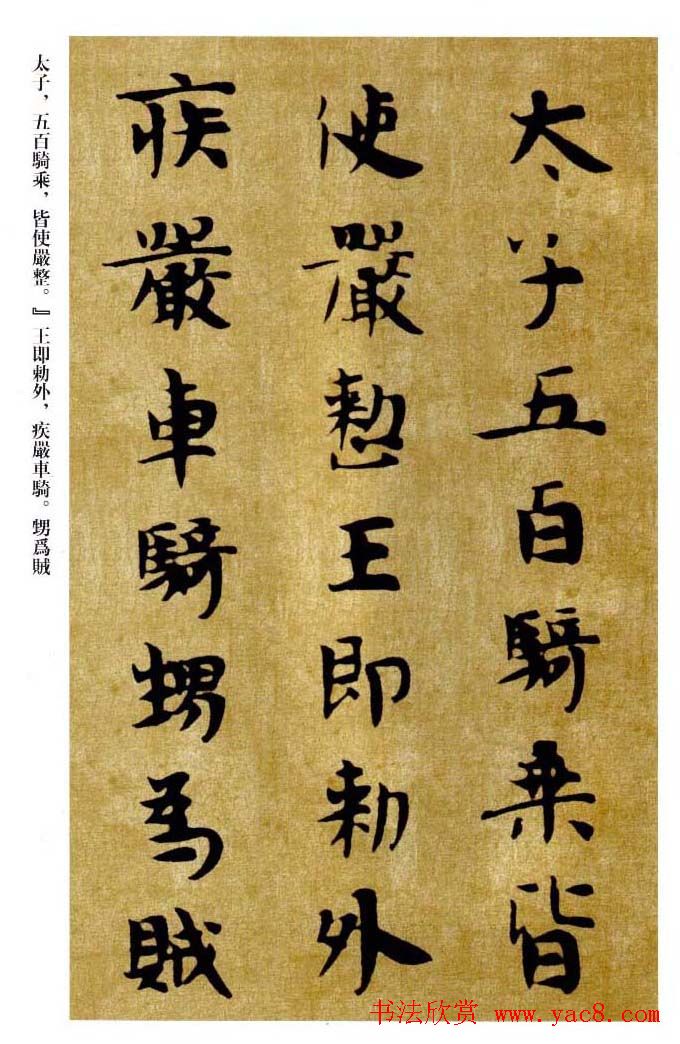 太子五百騎乘皆
使嚴整王即勑外
疾嚴車騎甥為賊
太子，五百騎乘，皆使嚴整。』王即勑外，疾嚴車騎。甥爲賊
书法欣赏 www.yac8.com